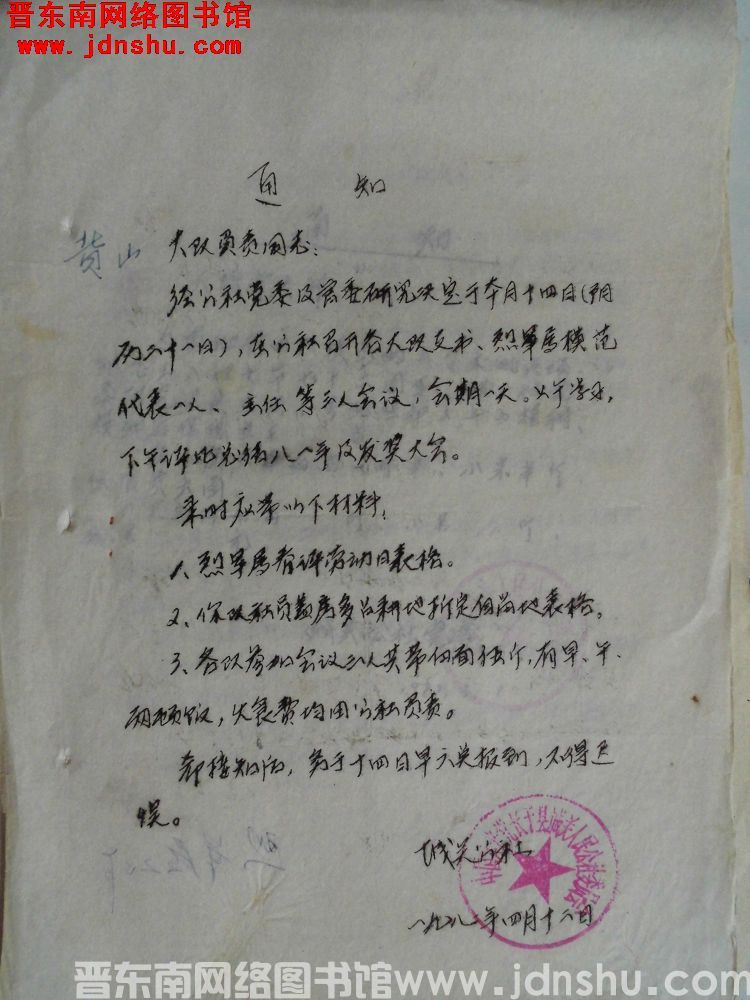 晋东南网络图书馆
www.jdnshu.com
通 知
黄山 大队负责同志：
经公社党委及管委研究决定于本月十四日（阴
历二十一日），在公社召开各大队支书、烈军属模范
代表一人、主任等三人会议，会期一天。上午学习，
下午评比总结八一年及发奖大会。
来时应带以下材料：
1、烈军属春评劳动日表格。
2、你队社员盖房多占耕地折宅自留地表格。
3、各队参加会议三人共带白面伍斤，有早、午
两顿饭，伙食费均由公社负责。
都接知后，务于十四日早六点报到，不得迟
误。
城关公社
一九八二年四月十二日
晋东南网络图书馆www.jdnshu.com